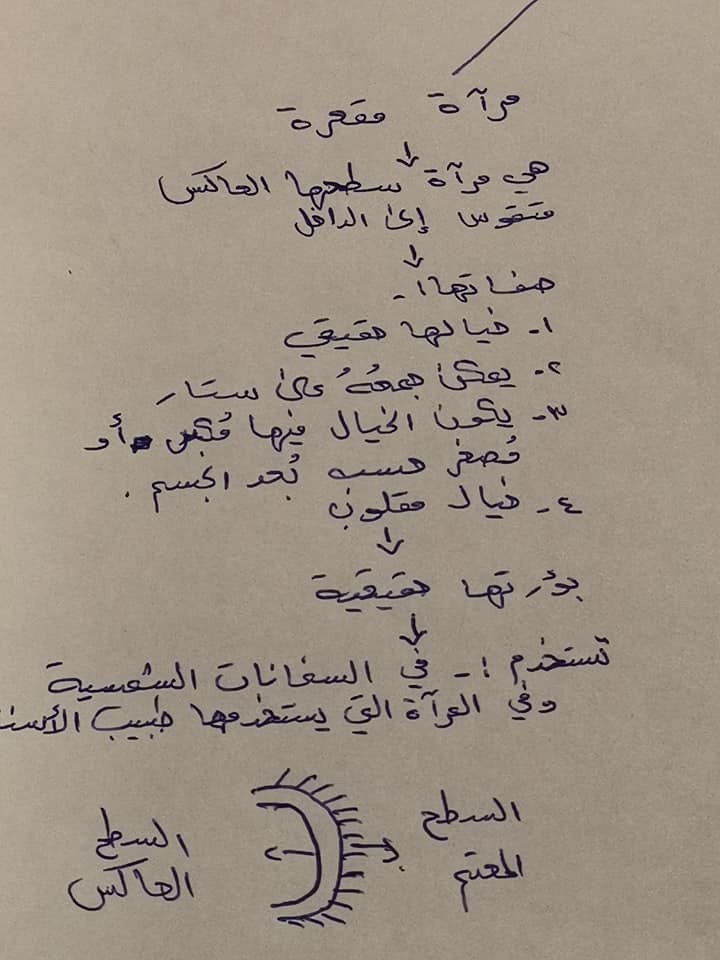 مرآة مقعرة
هي مرآة سطحها العاكس
متقوس إلى الداخل
صفاتها :-
١- خيالها حقيقي
٢- يمكن جمعُهُ على ستار
٣- يكون الخيال فيها مُكبر أو
مُصغر حسب بُعد الجسم .
٤- خيال مقلوب
بؤرتها حقيقية
تستخدم :- في السخانات الشمسية
وفي المرآة التي يستخدمها طبيب الأسنا
السطح السطح
المعتم العاكس